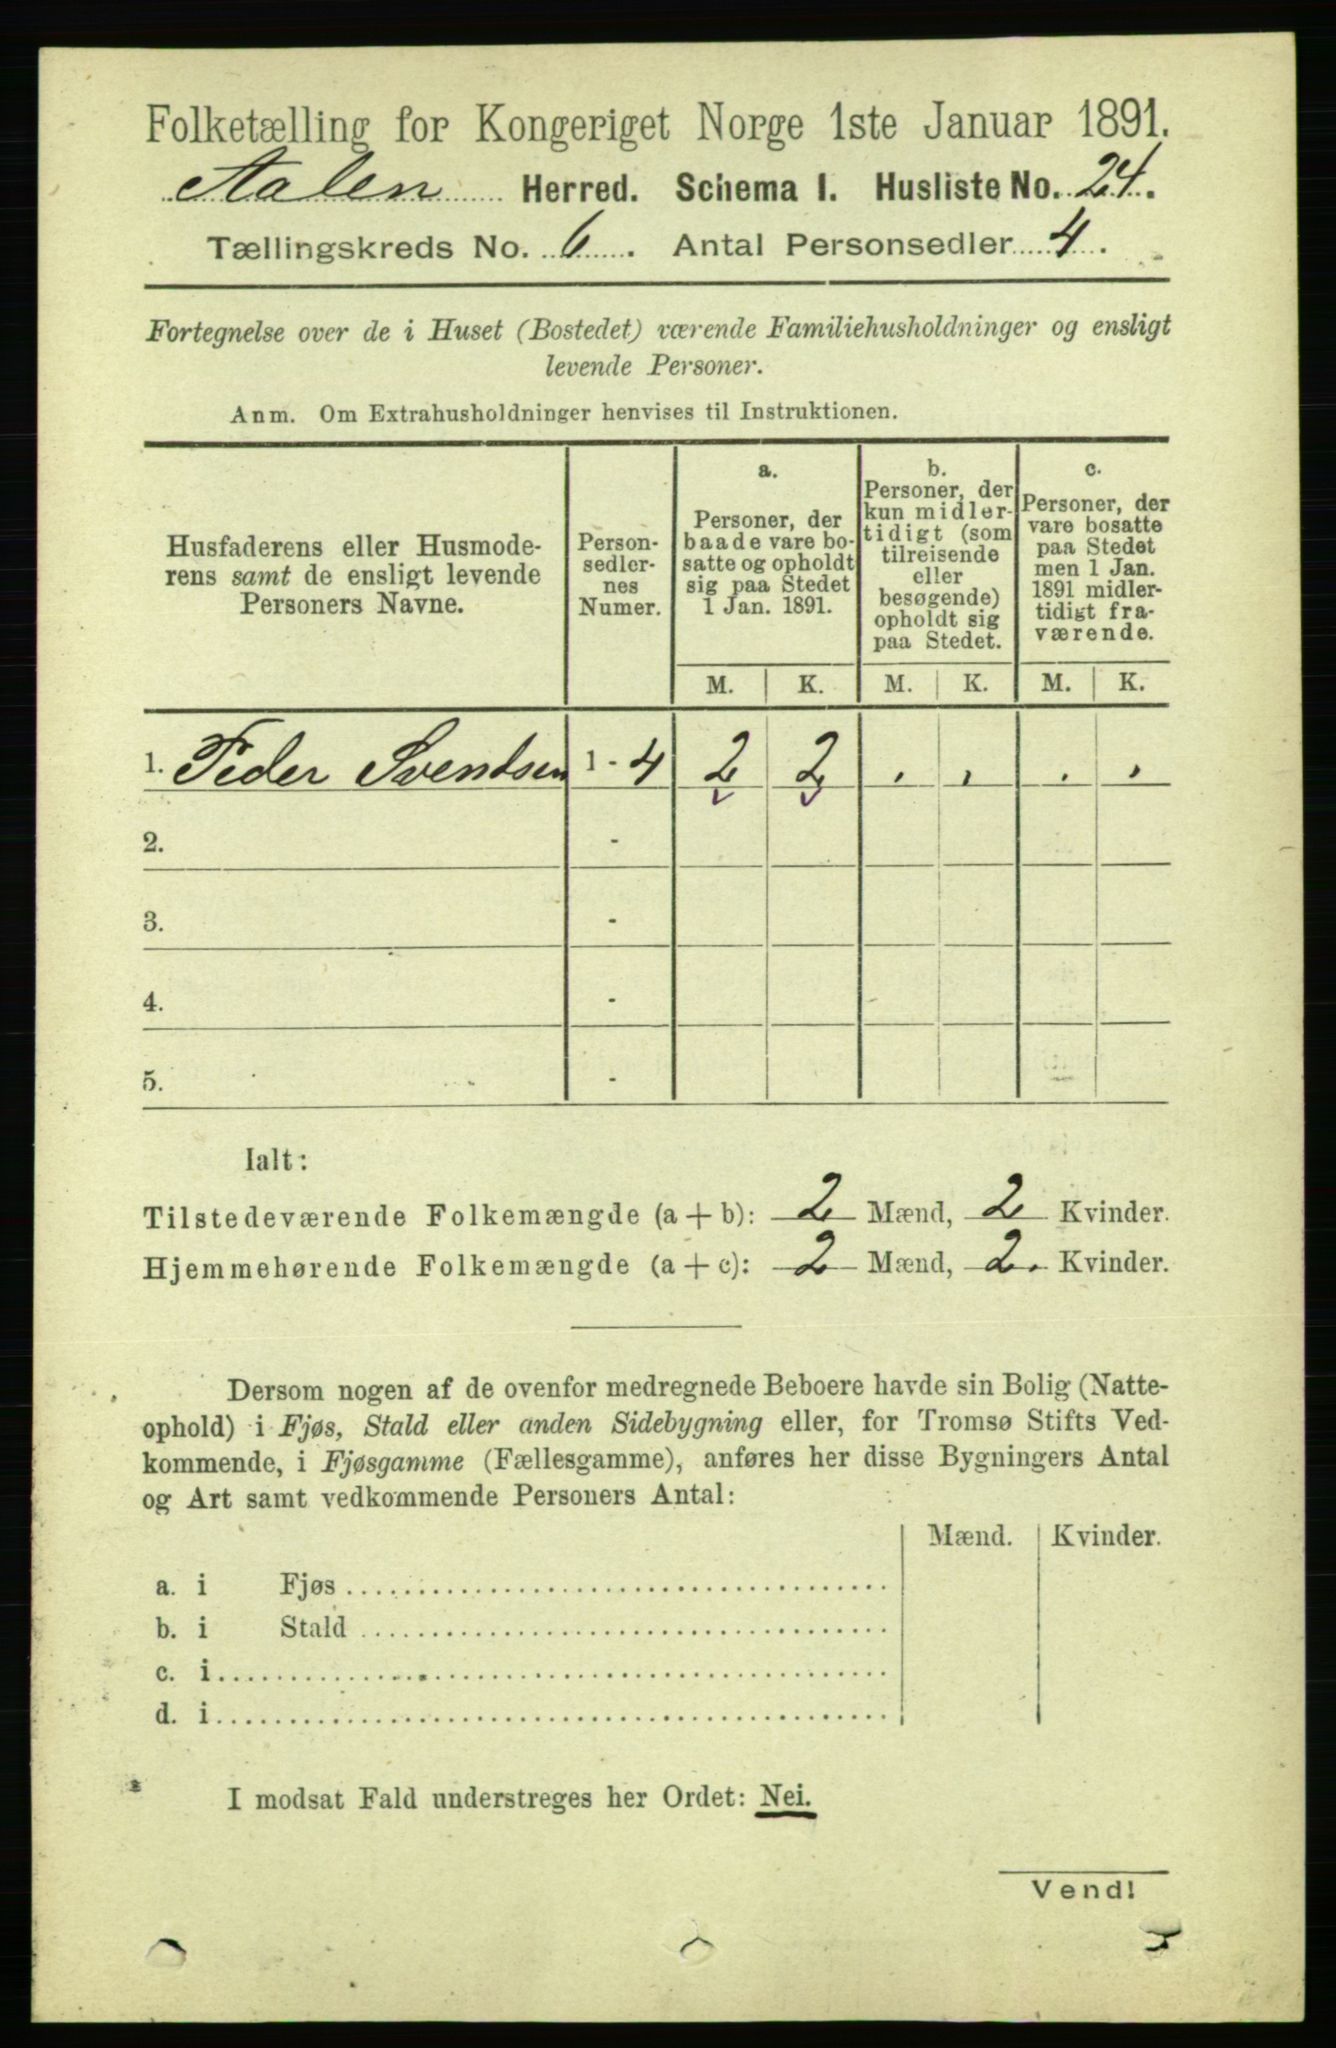 Folketælling for Kongeriget Norge 1ste Januar 1891.
Aalen Herred. Schema I. Husliste No. 24.
Tællingskreds No. 6. Antal Personsedler 4.
Fortegnelse over de i Huset (Bostedet) værende Familiehusholdninger og ensligt
levende Personer.
Anm. Om Extrahusholdninger henvises til Instruktionen.
Husfaderens eller Husmode-
rens samt de ensligt levende
Personers Navne.
Person-
sedler-
nes
Numer.
a.
Personer, der
baade vare bo-
satte og opholdt
sig paa Stedet
1 Jan. 1891.
b.
Personer, der
kun midler-
tidigt (som
tilreisende
eller
besøgende)
opholdt sig
paa Stedet.
c.
Personer, der
vare bosatte
paa Stedet
men 1 Jan.
1891 midler-
tidigt fra-
værende.
M. K. M. K. M. K.
1. Peder Svendsen 1 - 4 2 2 . . . .
2. -
3. -
4. -
5. -
Ialt:
Tilstedeværende Folkemængde (a + b): 2 Mænd, 2 Kvinder.
Hjemmehørende Folkemængde (a + c): 2 Mænd, 2. Kvinder.
Dersom nogen af de ovenfor medregnede Beboere havde sin Bolig (Natte-
ophold) i Fjøs, Stald eller anden Sidebygning eller, for Tromsø Stifts Ved-
kommende, i Fjøsgamme (Fællesgamme), anføres her disse Bygningers Antal
og Art samt vedkommende Personers Antal:
Mænd. Kvinder.
a. i Fjøs
b. i Stald
c. i
d. i
I modsat Fald understreges her Ordet: Nei.
Vend!